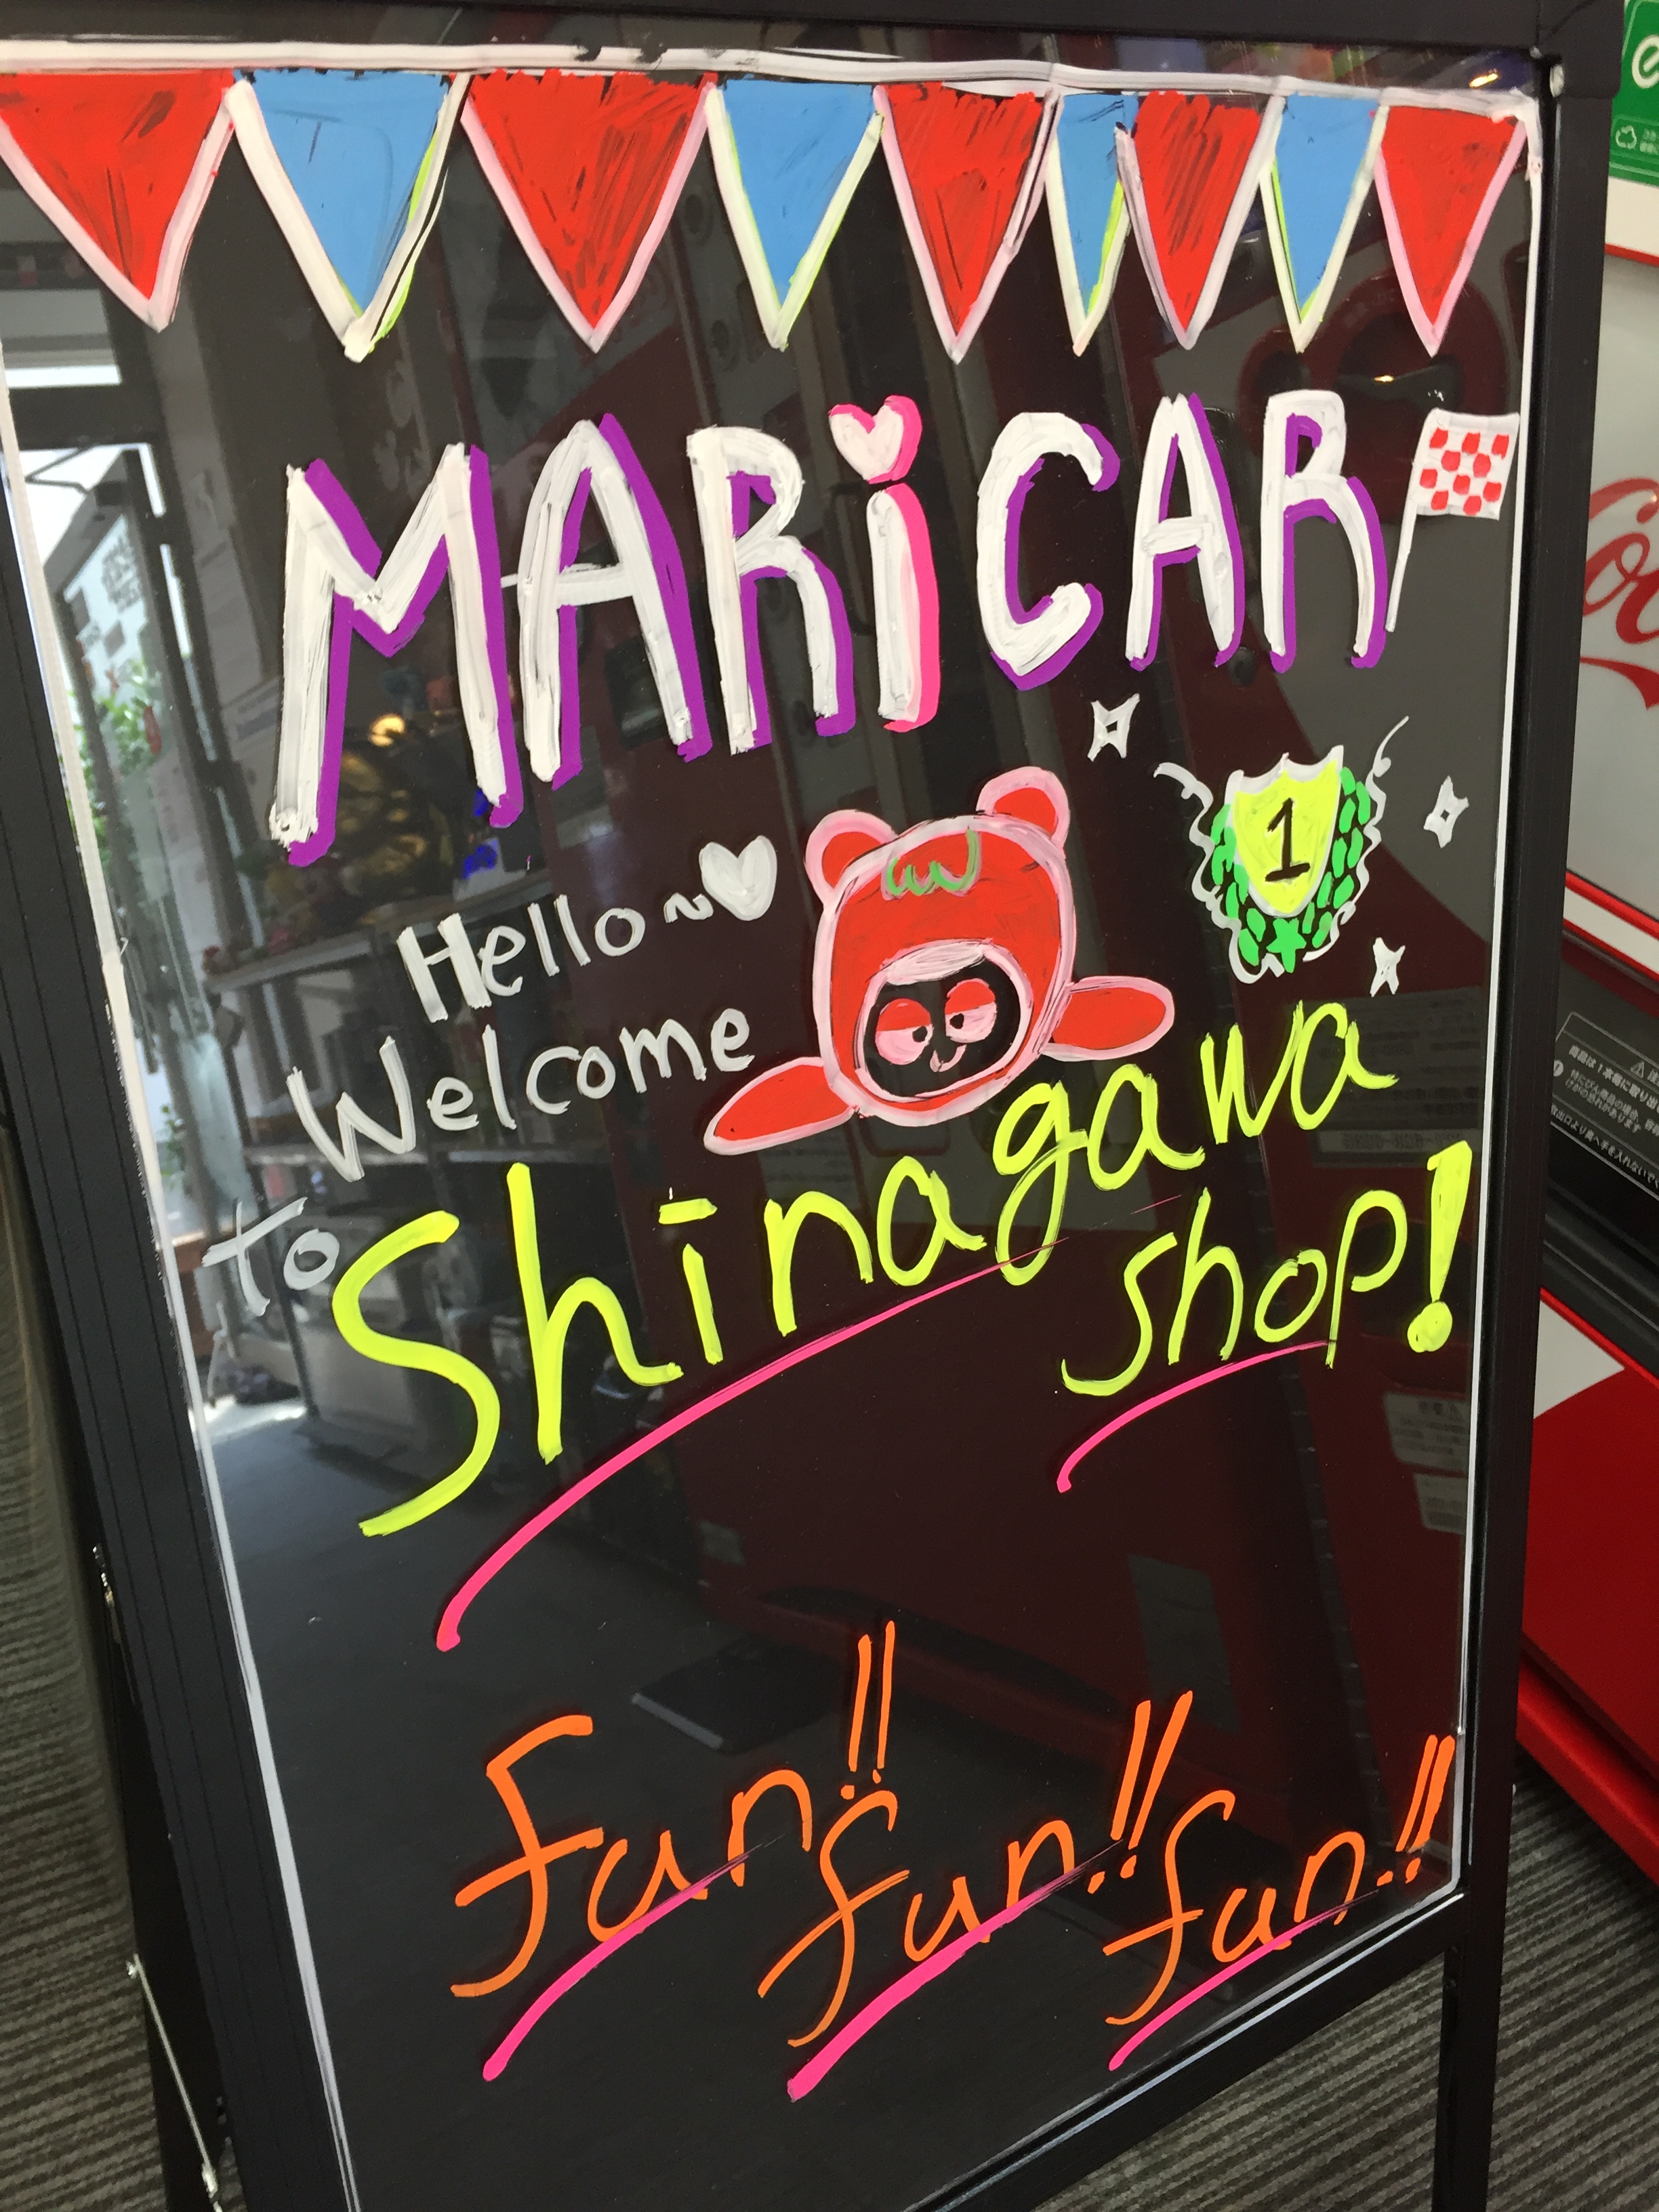 MARiCAR
1
Hello~
Welcome
to Shinagawa
shop!
fun!! fun!! fun!!